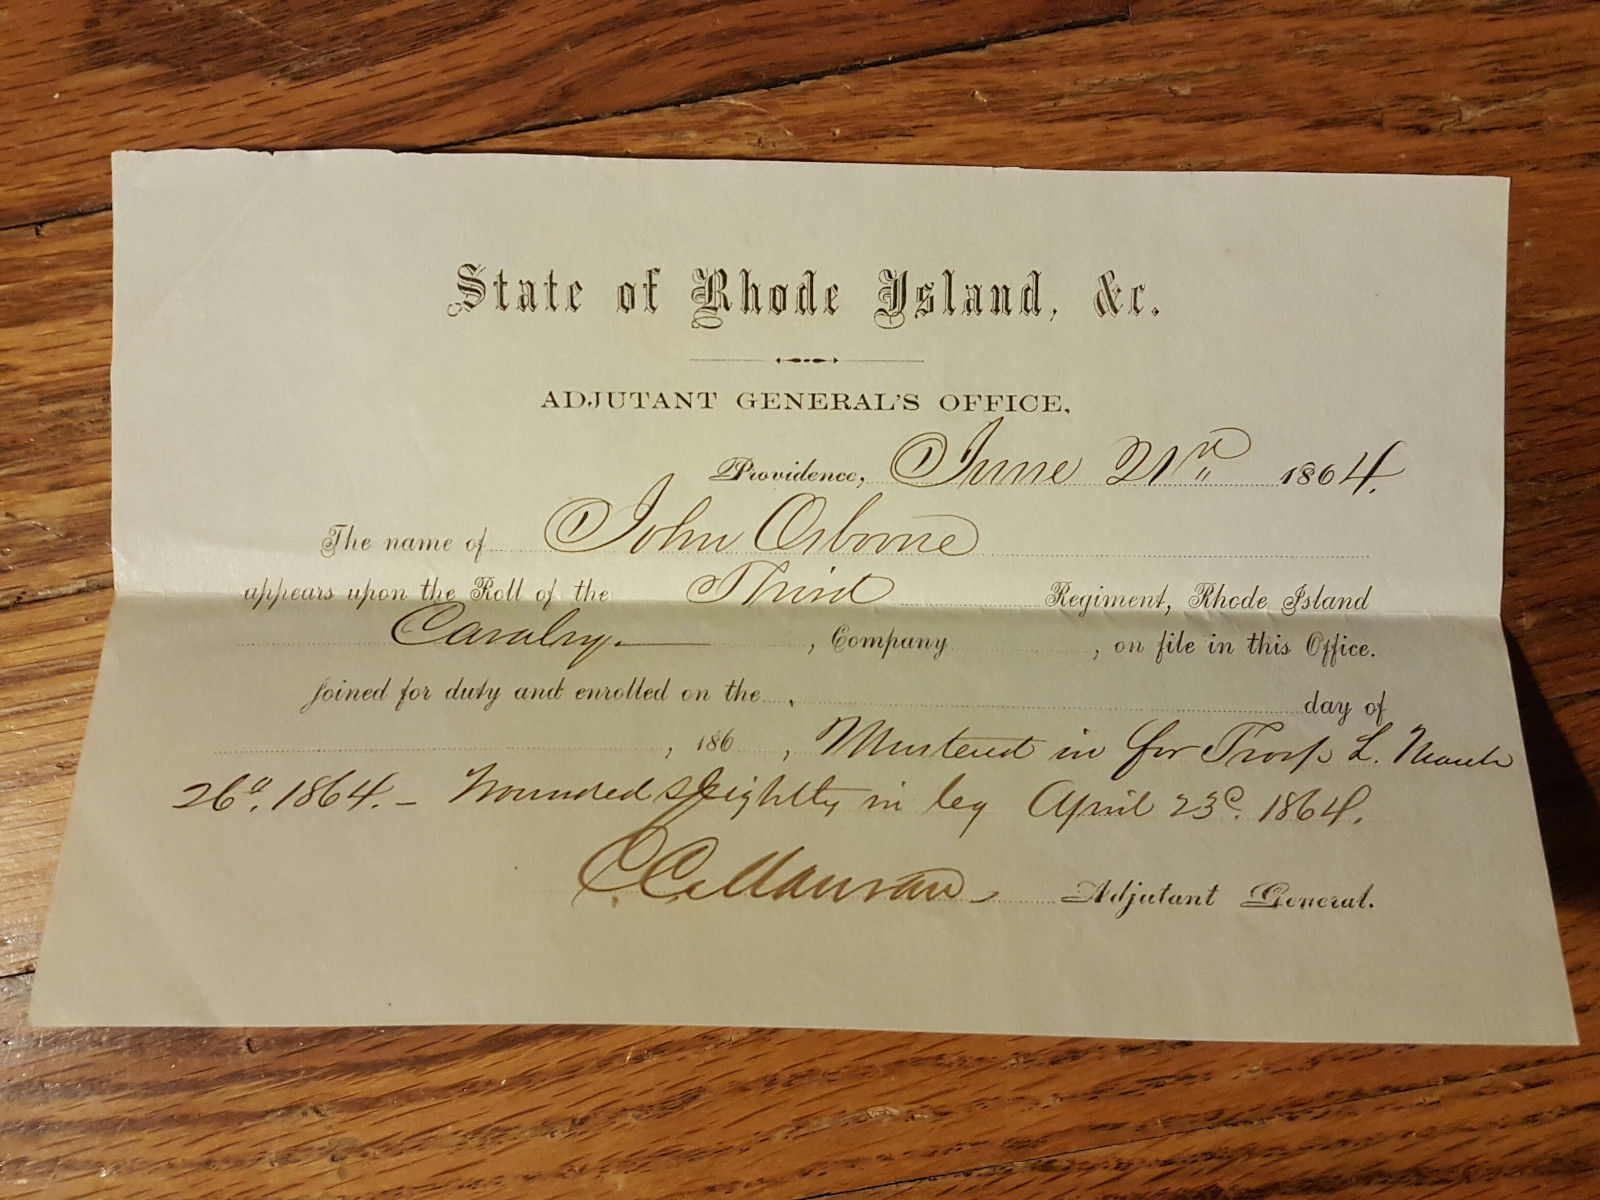 State of Rhode Island, &c.
ADJUTANT GENERAL'S OFFICE,
Providence, June 21st 1864.
The name of John Osborne
appears upon the Roll of the Third Regiment, Rhode Island
Cavalry. , Company , on file in this Office.
joined for duty and enrolled on the , day of
, 186 , Mustered in for Troop L. March
26th, 1864. – Wounded slightly in leg April 23d. 1864.
E C Mauran Adjutant General.